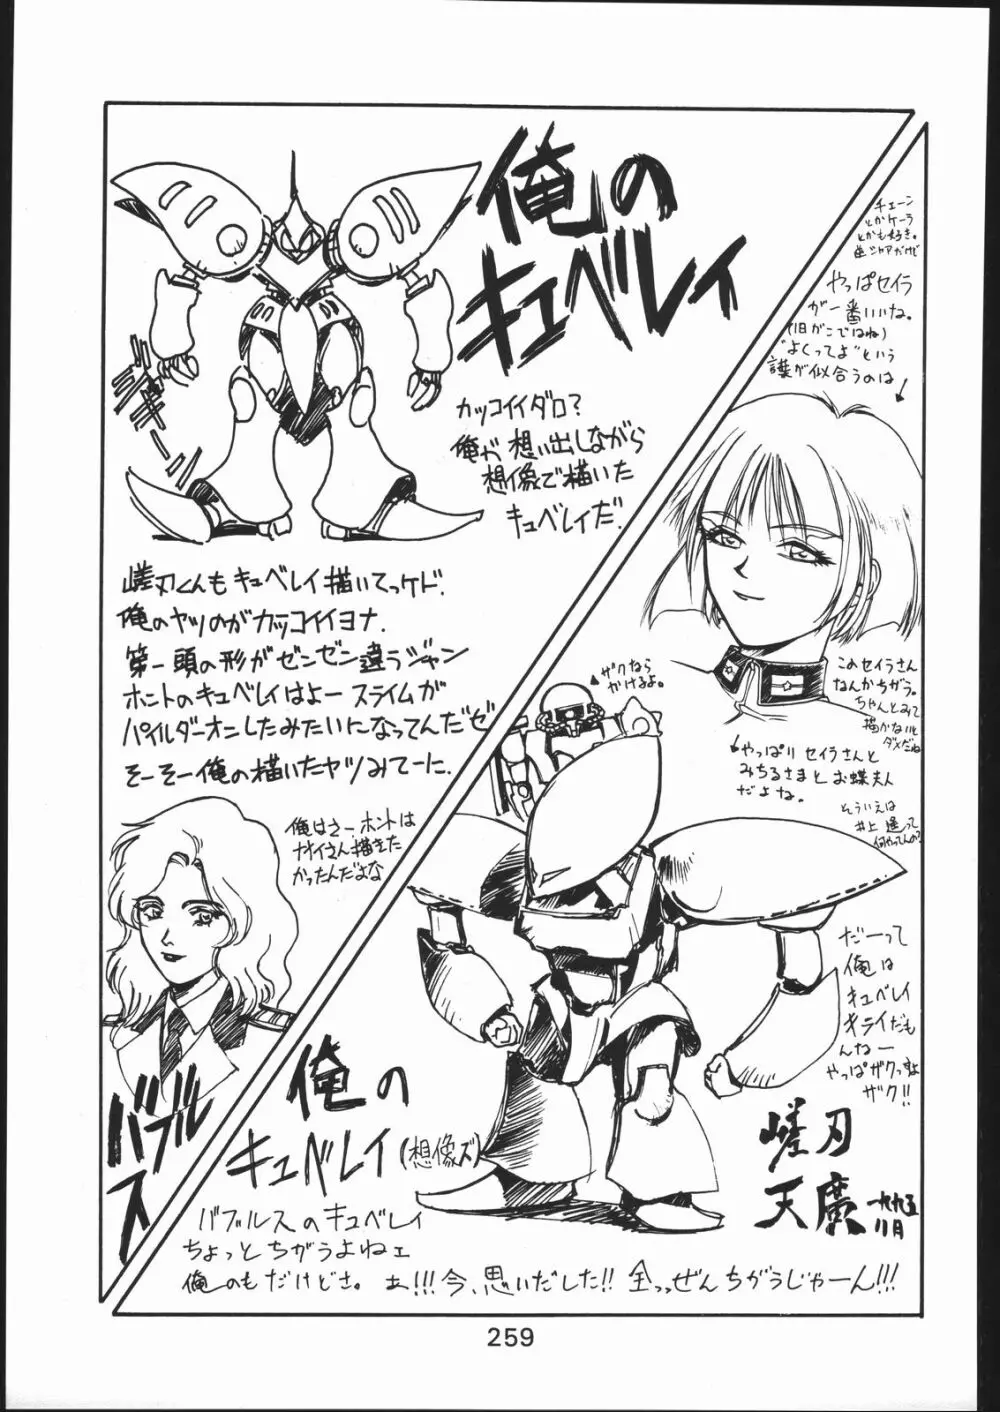 俺の
キュベレイ
カッコイイダロ?
俺が想い出しながら
想像で描いた
キュベレイだ!
嵯刃くんもキュベレイ描いてっケド.
俺のヤツのがカッコイイヨナ.
第一頭の形がゼンゼン違うジャン
ホントのキュベレイはよー スライムが
パイルダーオンしたみたいになってんだゼ
そーそー俺の描いたヤツみてーに.
俺はさー、ホントは
ナオイさん描きた
かったんだよな
バブルス
チェーン
とかケーラ
とかも好き。
逆シャアだけど
やっぱセイラ
が一番いいね。
(旧がこではね)
"よくってよ"という
言葉が似合うのは
このセイラさん
なんかちがう。
ちゃんとみて
描かないと
ダメだね
やっぱりセイラさんと
みちるさまとお蝶夫人
だよな。
そういえば
井上遥って
何やってんの?
ザクなら
かけるよ。
だーって
俺は
キュベレイ
キライだも
んねー
やっぱザクっすよ
ザク!!
俺の
キュベレイ(想像ズ)
バブルスのキュベレイ
ちょっとちがうよねェ
俺のもだけどさ。あ!!!今、思いだした!! 全っっぜんちがうじゃーん!!!
嵯刃
天廣
一九九五
11月
259